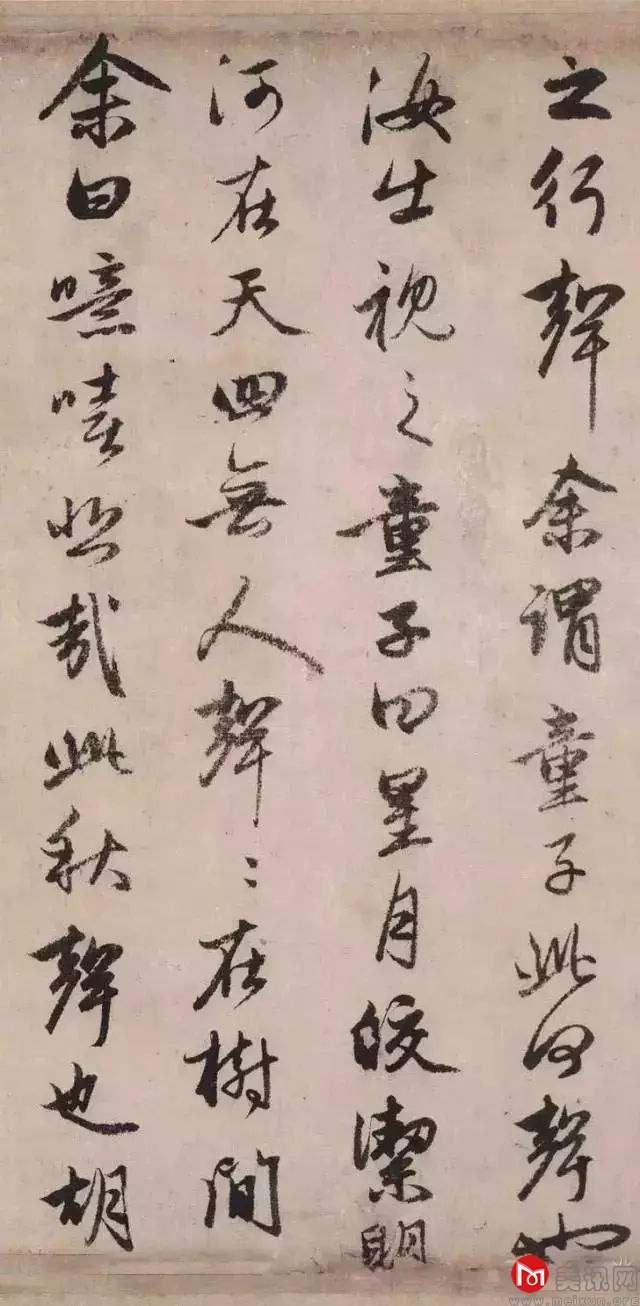 之行聲余謂童子此何聲也
汝出視之童子曰星月皎潔明
河在天四無人聲〻在樹間
余曰噫嘻悲哉此秋聲也胡
美讯网
www.meixun.org